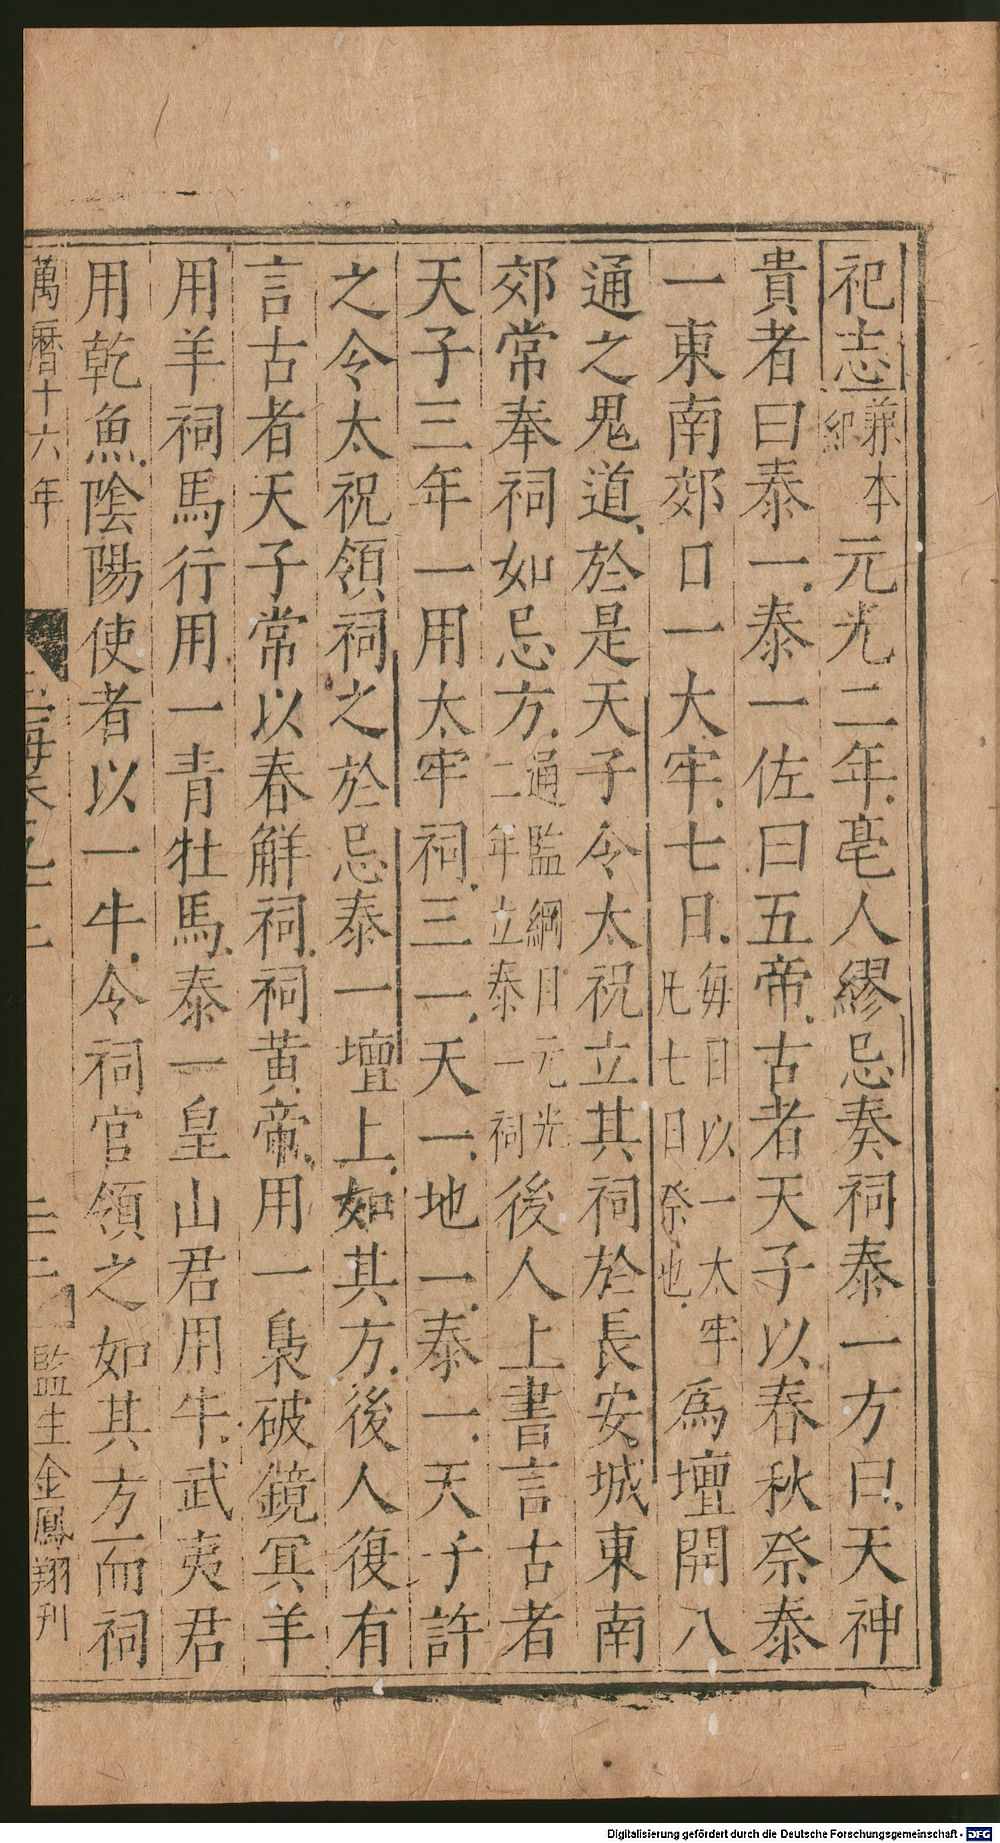 祀志兼本紀元光二年亳人繆忌奏祠泰一方曰天神
貴者曰泰一泰一佐曰五帝古者天子以春秋祭泰
一東南郊口一大牢七日每日以一太牢凡七日祭也為壇開八
通之鬼道於是天子令太祝立其祠於長安城東南
郊常奉祠如忌方通鑑綱目元光二年立泰一祠後人上書言古者
天子三年一用太牢祠三一天一地一泰一天子許
之令太祝領祠之於忌泰一壇上如其方後人復有
言古者天子常以春解祠祠黃帝用一梟破鏡冥羊
用羊祠馬行用一青牡馬泰一皇山君用牛武夷君
用乾魚陰陽使者以一牛令祠官領之如其方而祠
萬曆十六年 監生金鳳翔刊
Digitalisierung gefördert durch die Deutsche Forschungsgemeinschaft - DFG